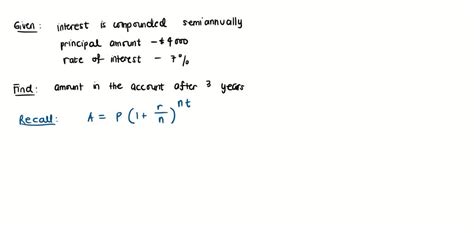 Given: interest is compounded semiannually
principal amount - $4000
rate of interest - 7%
Find: amount in the account after 3 years
Recall: A = P (1 + r/n)^nt